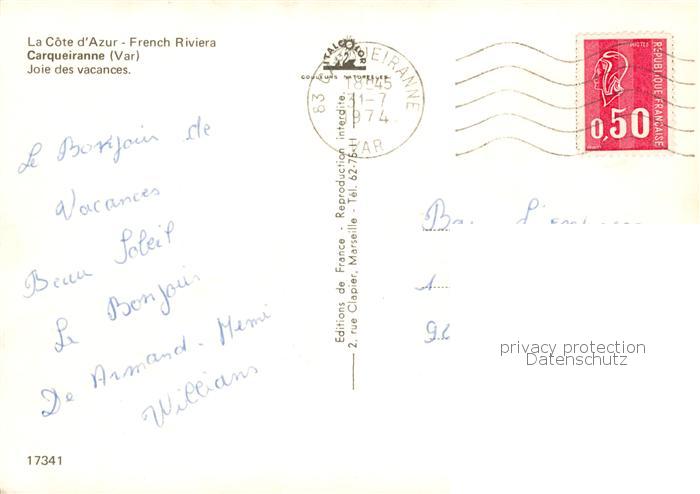 La Côte d'Azur - French Riviera
Carqueiranne (Var)
Joie des vacances.
ITALCOLOR
COULEURS NATURELLES
83 CARQUEIRANNE
18H45
31-7
1974
VAR
POSTES
REPUBLIQUE FRANÇAISE
0,50
Le Bonjour de
Vacances
Beau Soleil
Le Bonjour
De Armand - Mémi
Willians
Editions de France - Reproduction interdite
2, rue Clapier, Marseille - Tél. 62-75-11
privacy protection
Datenschutz
17341